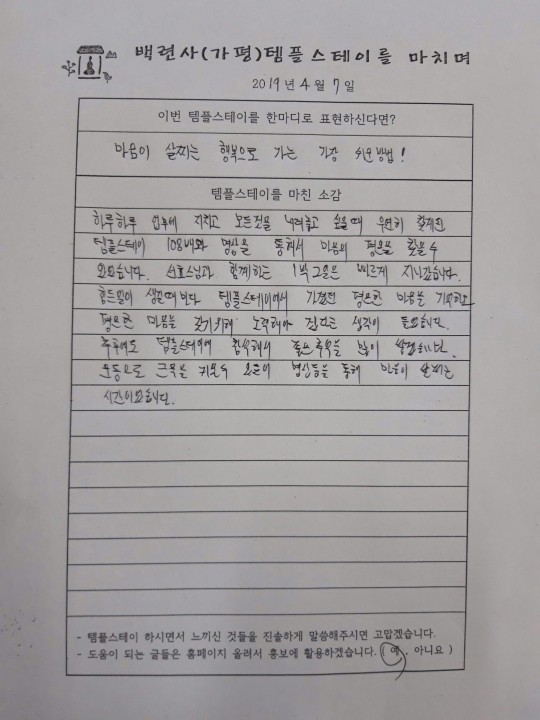 백련사(가평)템플스테이를 마치며
2019년 4월 7일
이번 템플스테이를 한마디로 표현하신다면?
마음이 살찌는 행복으로 가는 가장 쉬운방법!
템플스테이를 마친 소감
하루하루 업무에 지치고 모든것을 내려놓고 싶을때 우연히 찾게된
템플스테이 108배와 명상을 통해서 마음의 평온을 찾을수
있었습니다. 선호스님과 함께하는 1박2일은 빠르게 지나갔습니다.
힘든일이 생길때마다 템플스테이에서 가졌던 평온한 마음을 기억하고
평온한 마음을 갖기위해 노력해야 겠다는 생각이 들었습니다.
추후에도 템플스테이에 참석해서 좋은추억을 많이
운동으로 근육을 키울수 있듯이 명상등을 통해 마음이 살찌는
시간이었습니다.
- 템플스테이 하시면서 느끼신 것들을 진솔하게 말씀해주시면 고맙겠습니다.
- 도움이 되는 글들은 홈페이지 올려서 홍보에 활용하겠습니다. ( 예 , 아니요 )